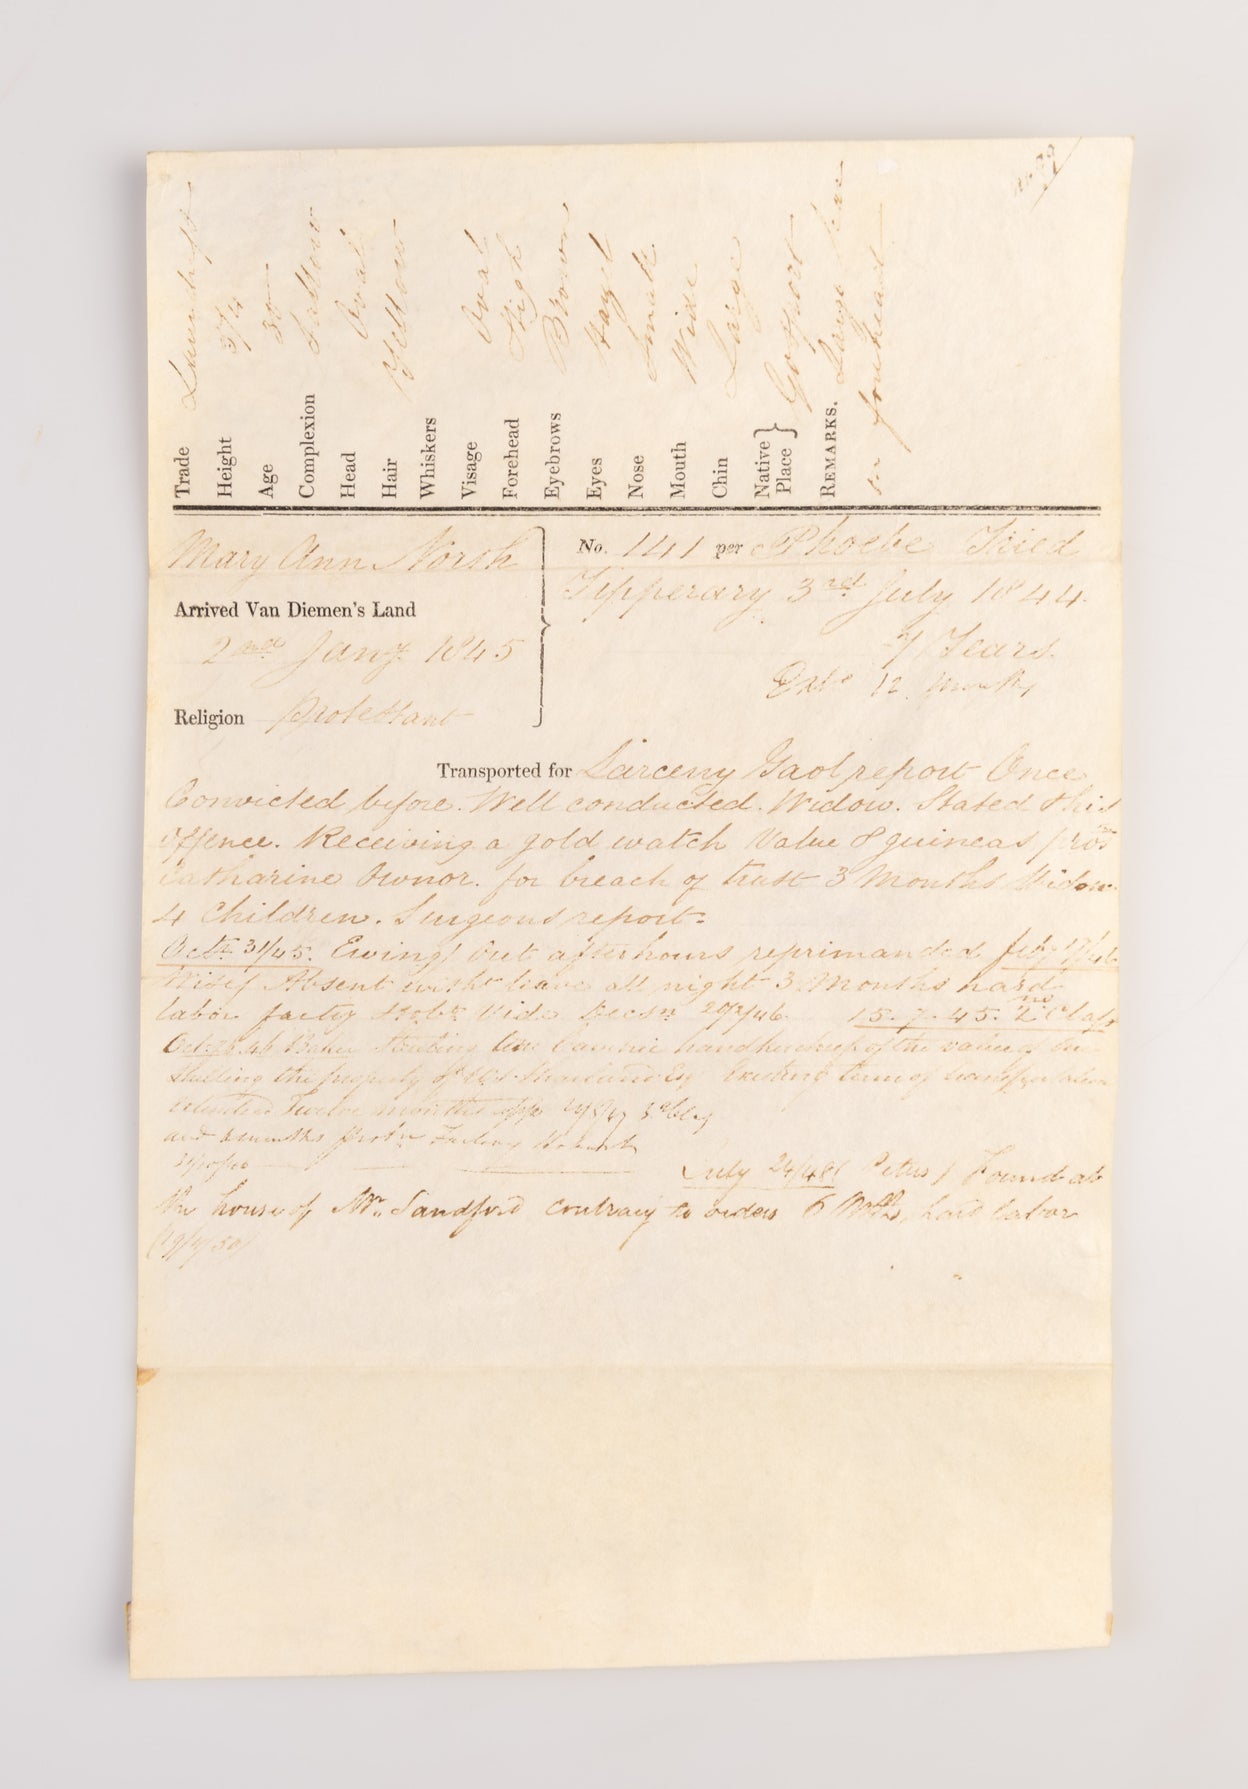 Trade Laundress
Height 5/4
Age 30
Complexion Sallow
Head Oval
Hair Yellow
Whiskers
Visage Oval
Forehead High
Eyebrows Brown
Eyes Hazel
Nose Small
Mouth Wide
Chin Large
Native Place } Gosport
REMARKS. Large
on forehead
Mary Ann North
Arrived Van Diemen's Land
2nd Jany 1845
Religion Protestant
No. 141 per Phoebe Tried
Tipperary 3rd July 1844.
7 Years.
12 Months
Transported for Larceny Gaol report Once
Convicted before. Well conducted. Widow. Stated this
offence. Receiving a gold watch Value 8 guineas pros
Catharine Ownor. for breach of trust 3 Months Widow.
4 Children. Surgeons report.
Octr 31/45. Ewing/ Out after hours reprimanded feby 17/46
Absent witht leave all night 3 Months hard
labor facty Vide Decsn 15.7.45. 2nd Class
Oct 46 Stealing handkerchief of the value of
shilling the property of Esq Existing term of transportation
extended Twelve months
and months Factory Hobart
July 24/48/ Found at
the house of Mr. Sandford contrary to orders 6 Mths, hard labor